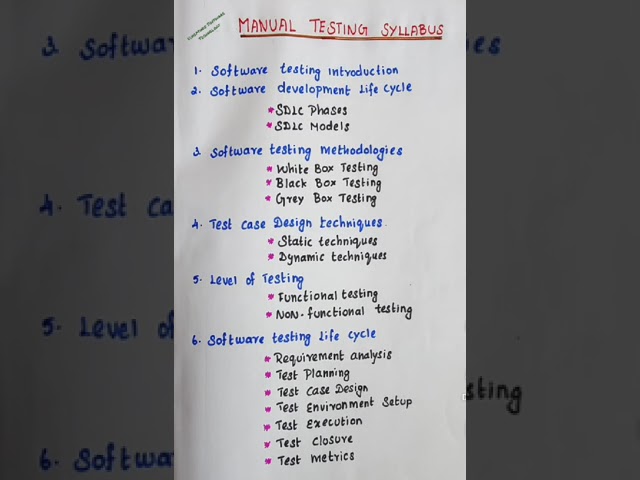 MANUAL TESTING SYLLABUS
1. Software testing introduction
2. Software development Life Cycle
* SDLC Phases
* SDLC Models
3 Software testing methodologies
* White Box Testing
* Black Box Testing
* Grey Box Testing
4. Test case Design techniques
* Static techniques
* Dynamic techniques
5. Level of Testing
* Functional testing
* NON-functional testing
6. Software testing Life cycle
* Requirement analysis
* Test Planning
* Test Case Design
* Test Environment Setup
* Test Execution
* Test Closure
* Test Metrics